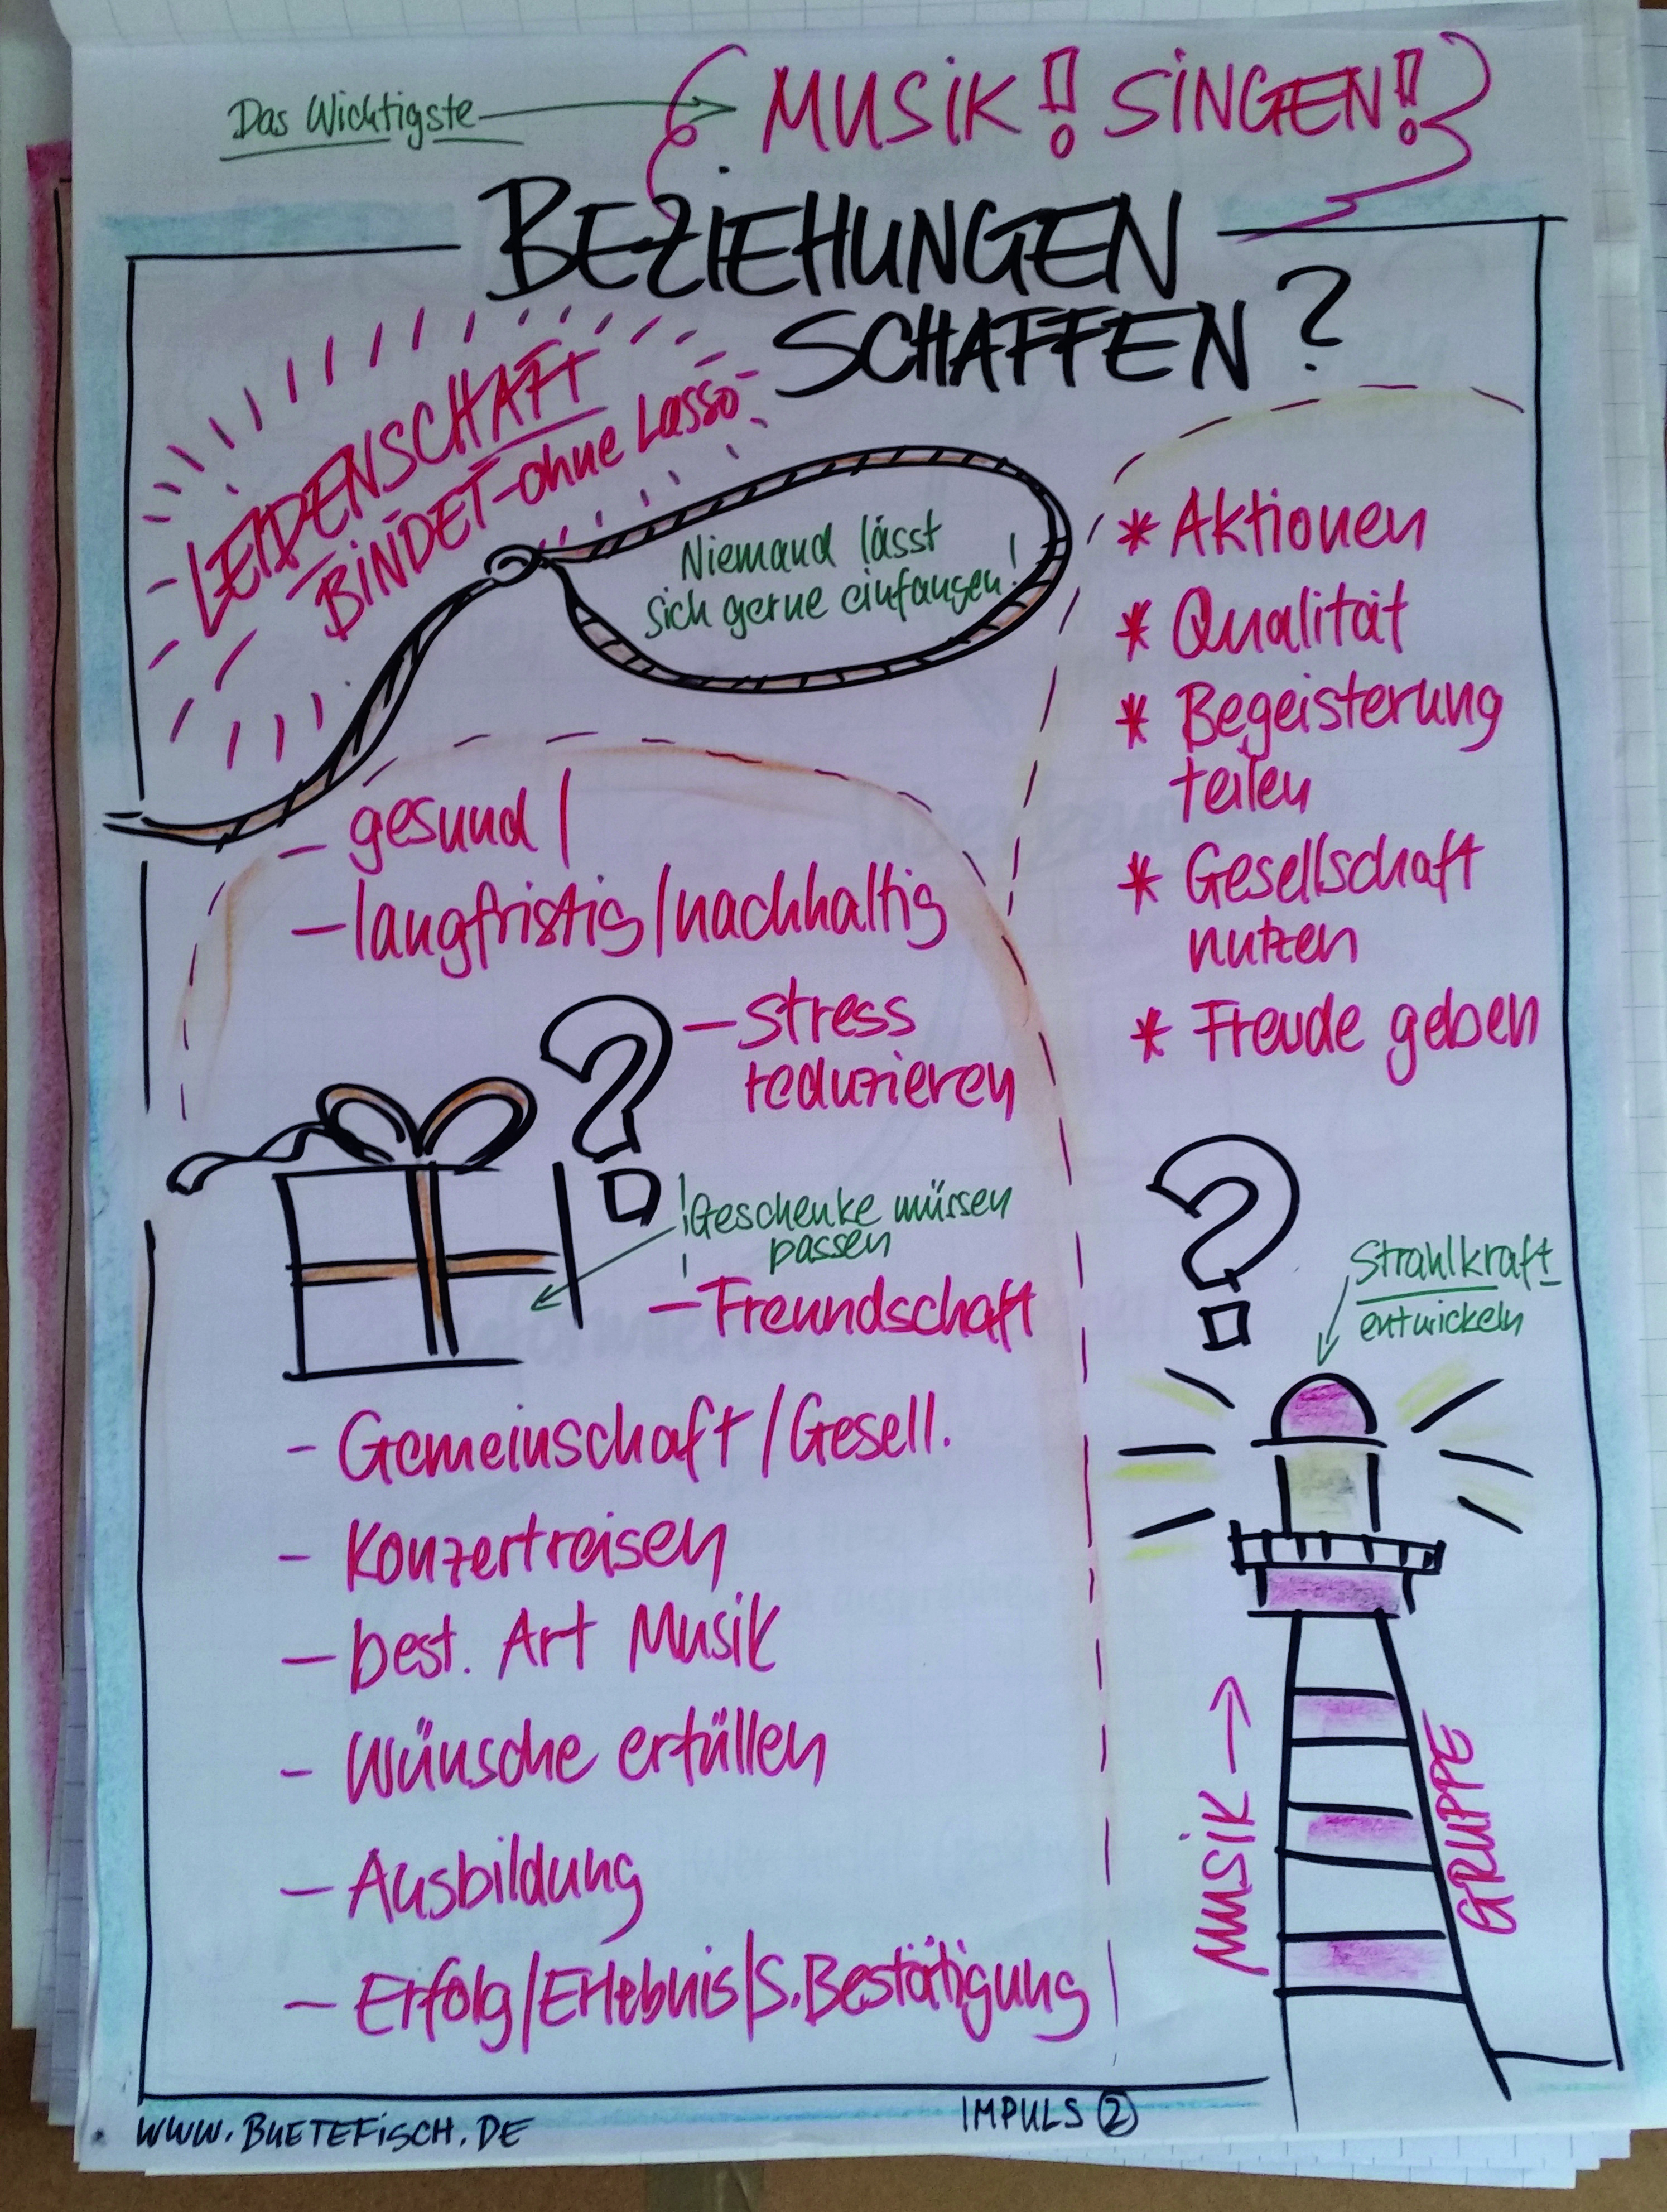 Das Wichtigste
MUSIK! SINGEN!
BEZIEHUNGEN
SCHAFFEN?
LEIDENSCHAFT
BINDET-ohne Lasso-
Niemand lässt
sich gerne einfangen!
* Aktionen
* Qualität
* Begeisterung
teilen
* Gesellschaft
nutzen
* Freude geben
- gesund/
- langfristig/nachhaltig
- Stress
reduzieren
?
!Geschenke müssen
passen
- Freundschaft
- Gemeinschaft/Gesell.
- Konzertreisen
- best. Art Musik
- Wünsche erfüllen
- Ausbildung
- Erfolg/Erlebnis/S.Bestätigung
?
Strahlkraft
entwickeln
MUSIK
GRUPPE
WWW.BUETEFISCH.DE
IMPULS 2